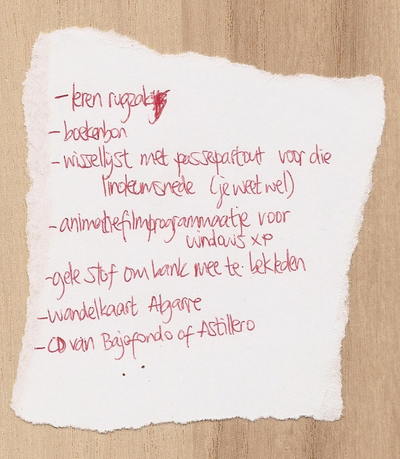 - leren rugzakje
- boekenbon
- wissellijst met passepartout voor die
linoleumsnede (je weet wel)
- animatiefilmprogrammaatje voor
windows xp
- gele stof om bank mee te bekleden
- wandelkaart Algarve
- CD van Bajofondo of Astillero